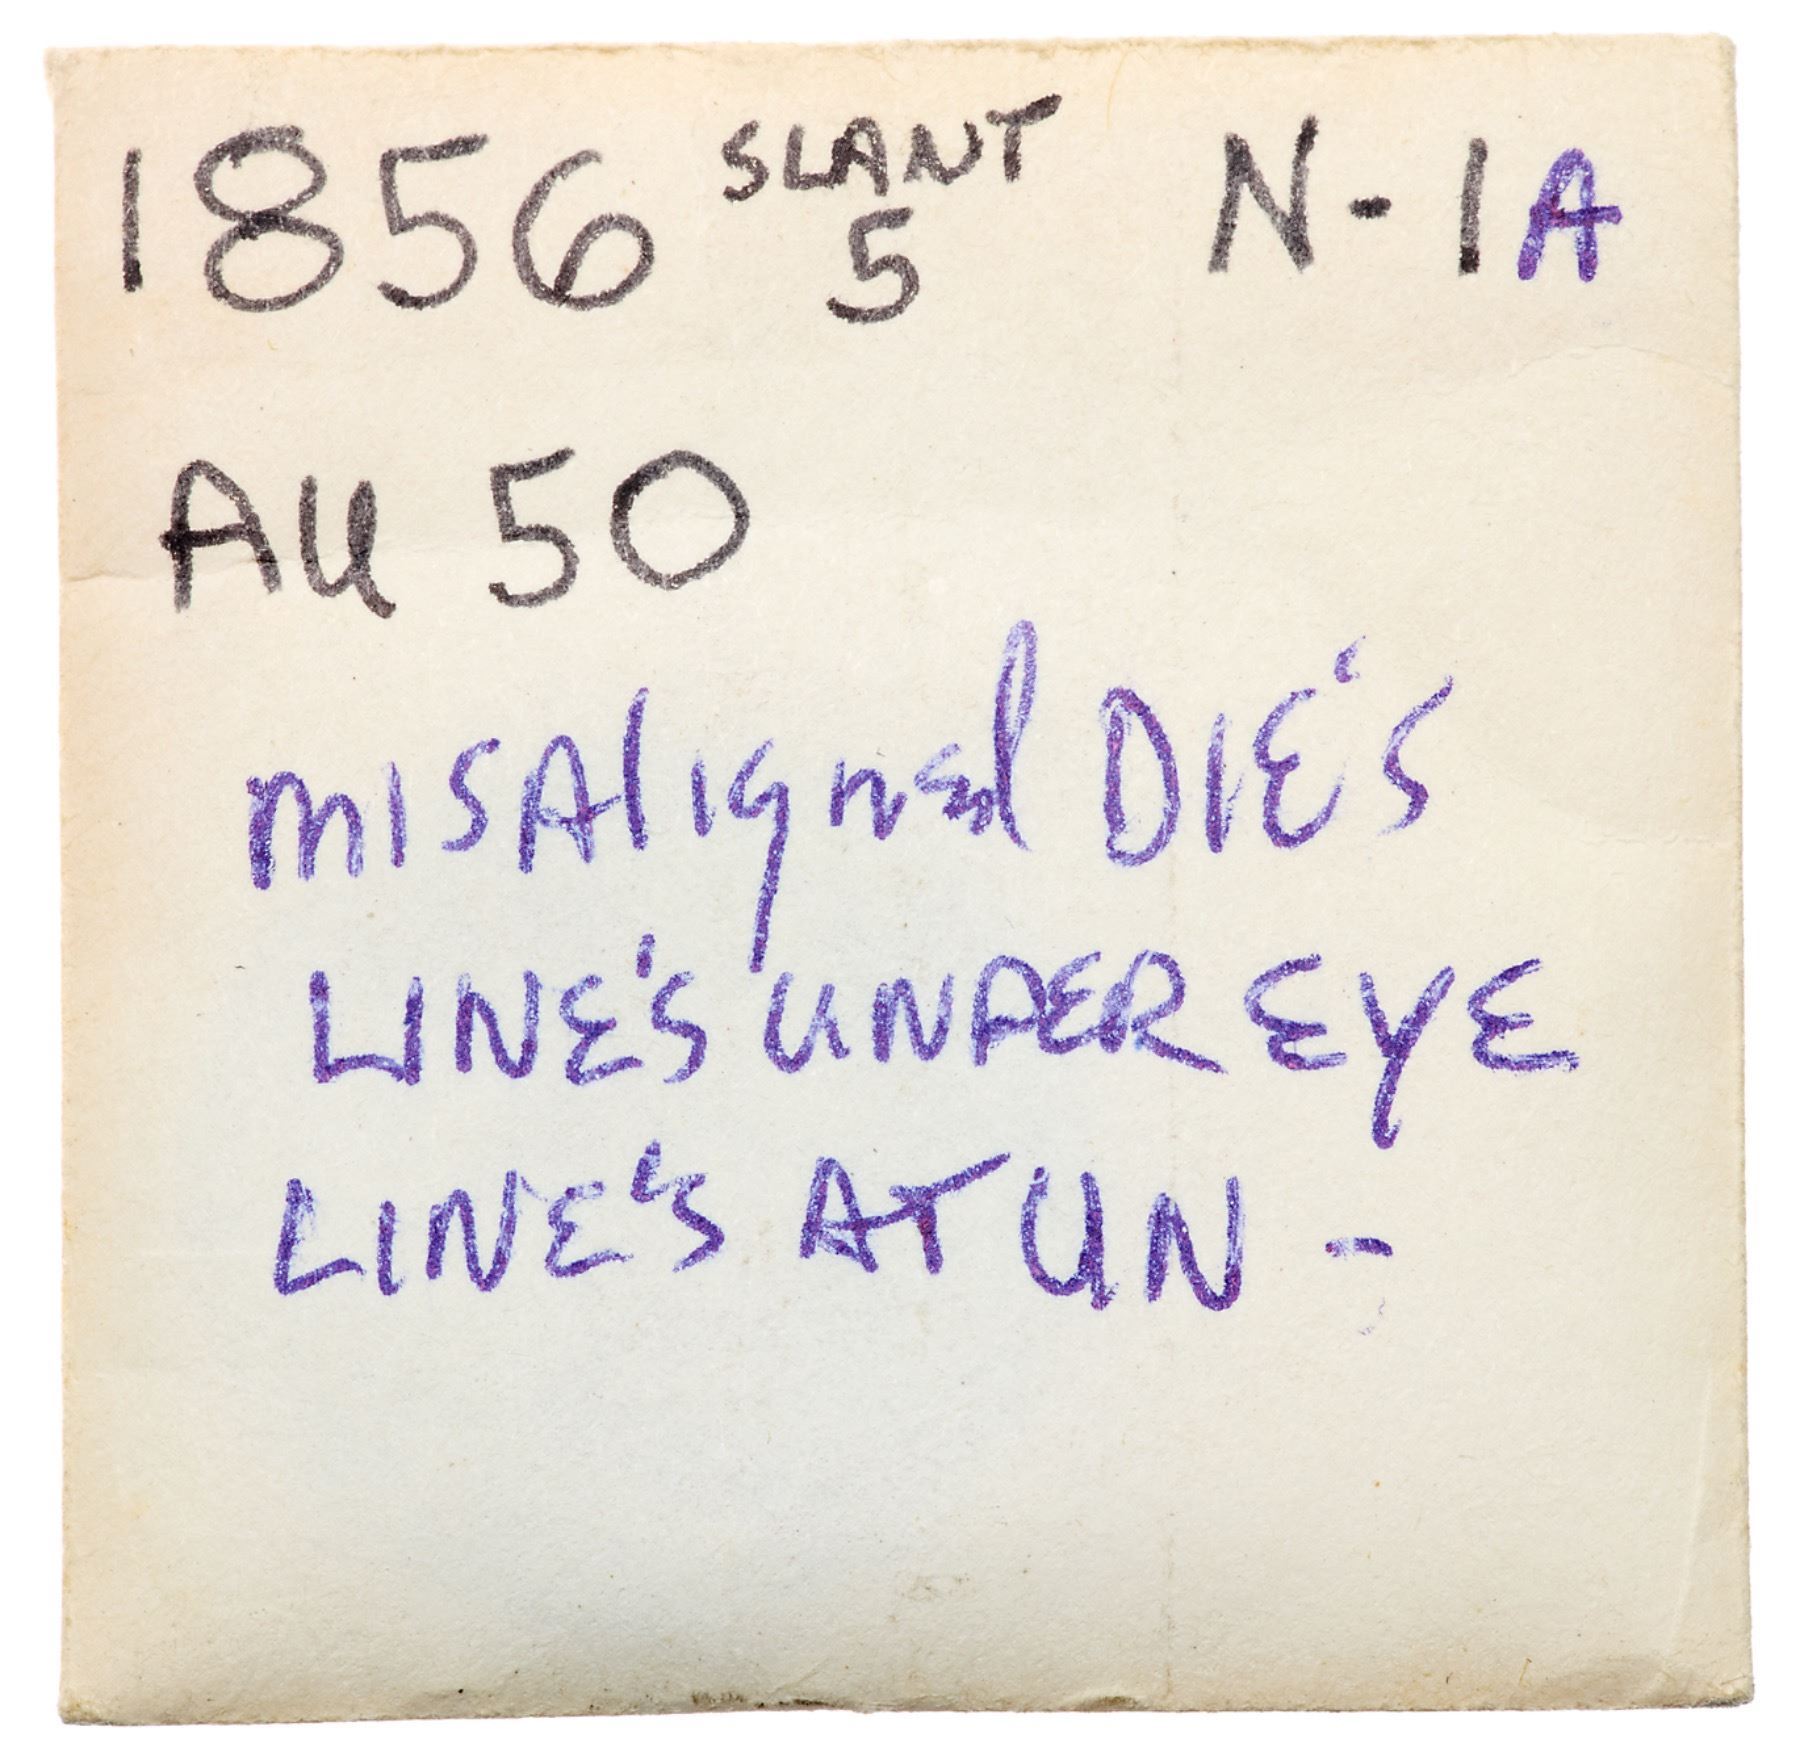 1856 SLANT 5 N-1A
AU 50
misAligned DIE'S
LINE'S UNDER EYE
LINE'S AT UN -